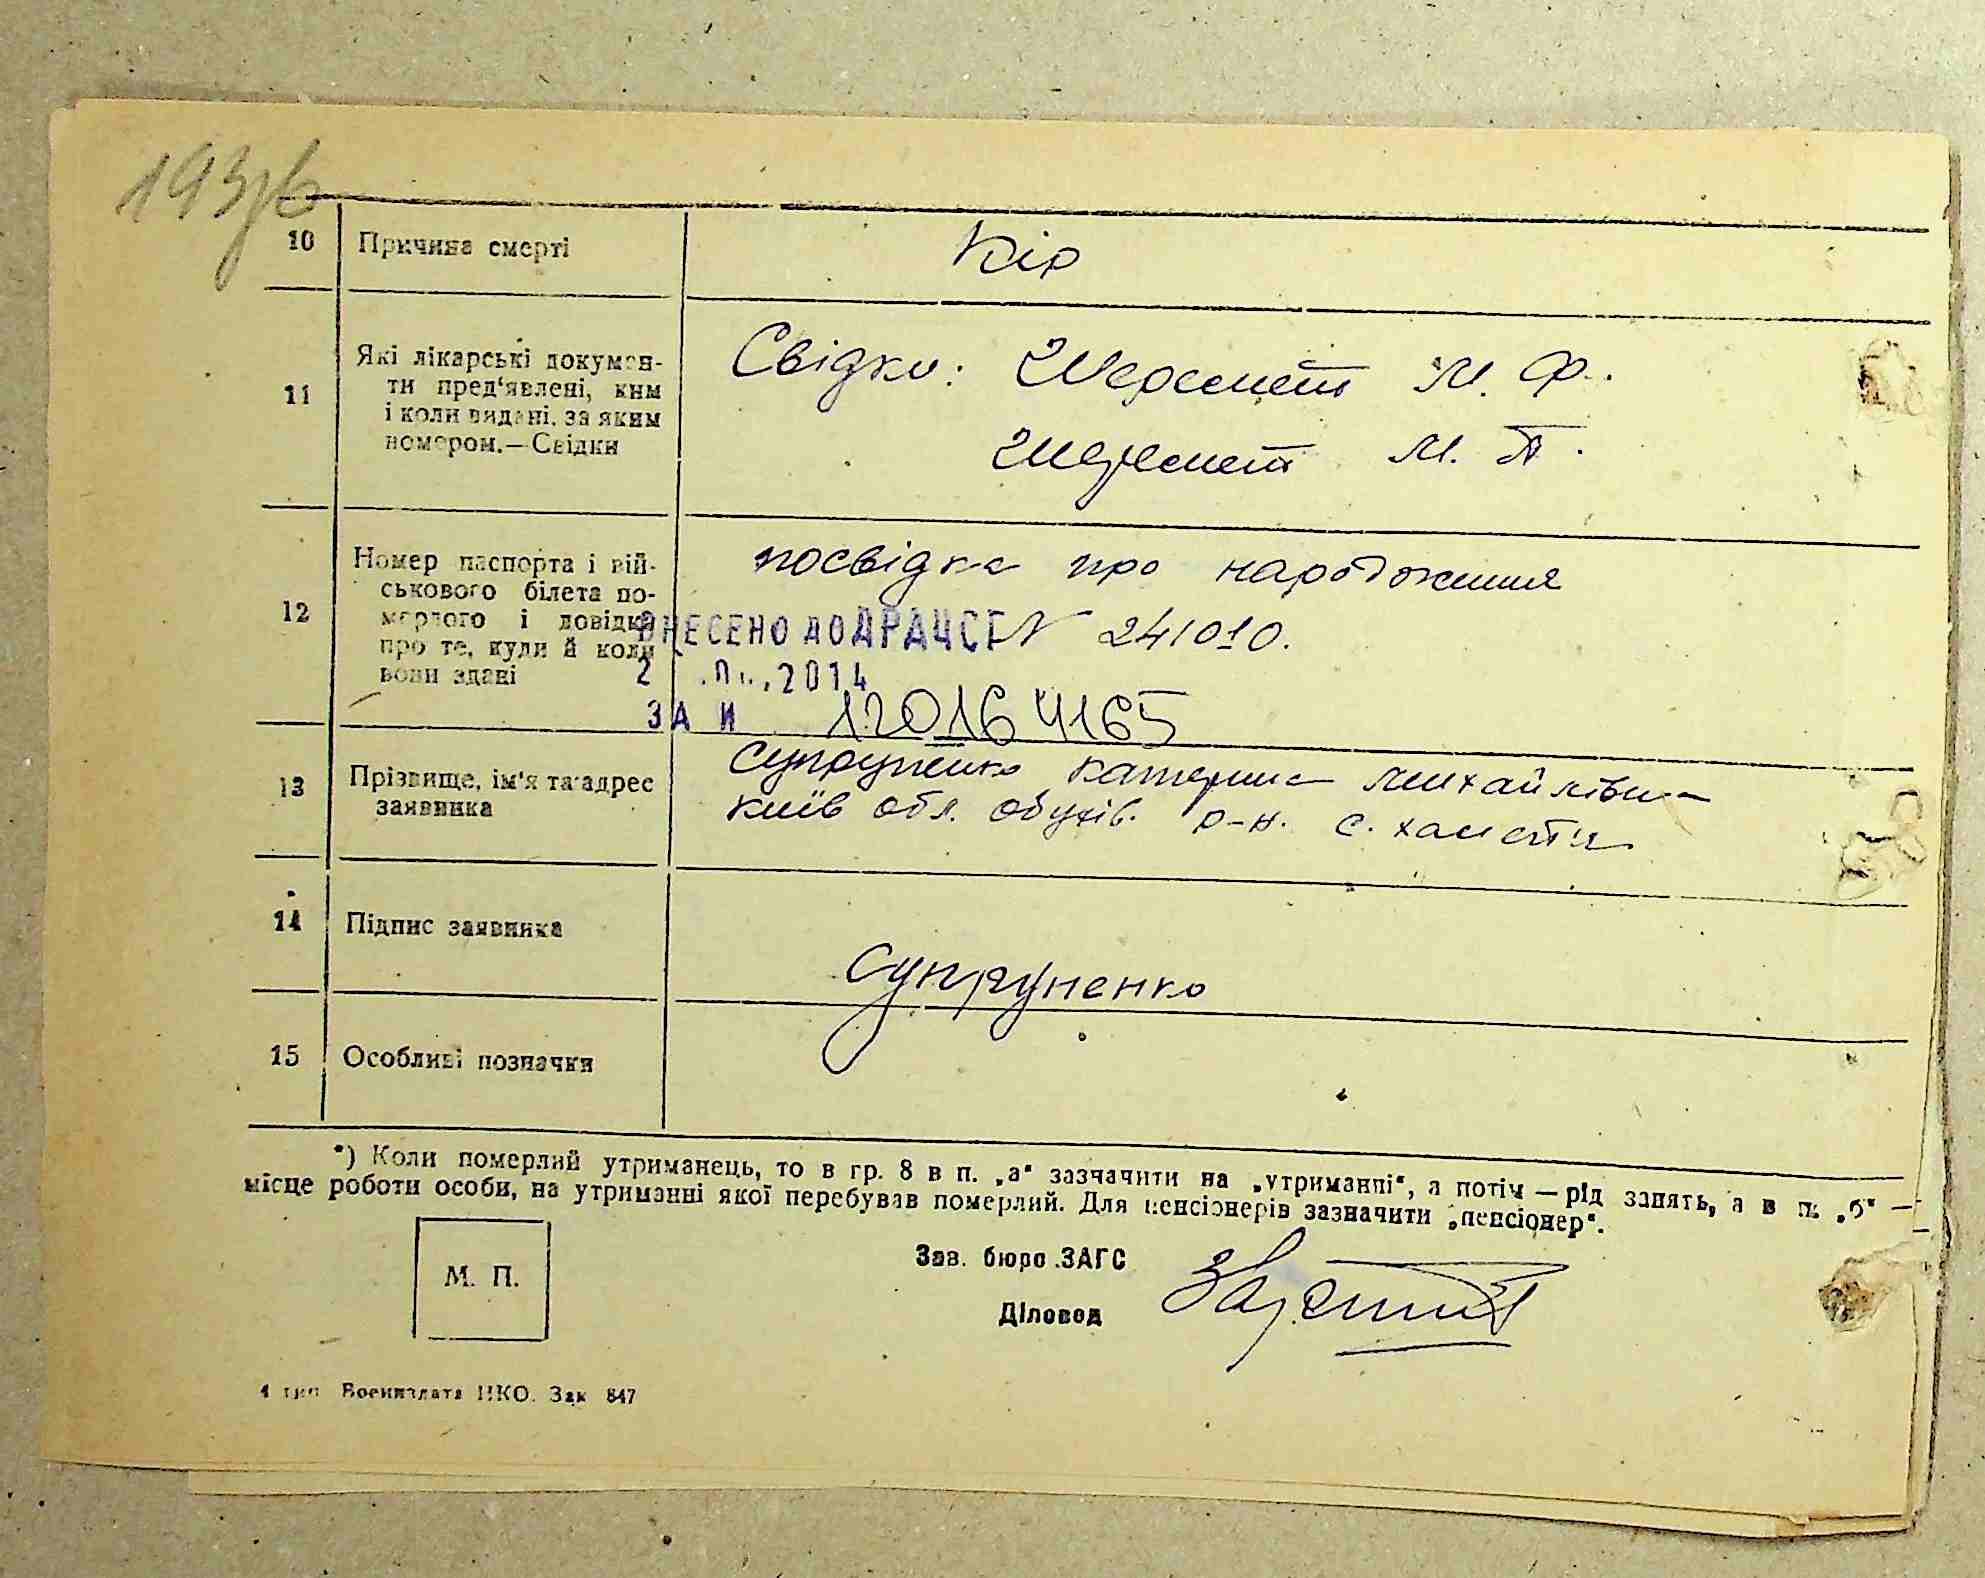 193зв
10 Причина смерті Кір
11 Які лікарські докумен-
ти пред'явлені, ким
і коли видані, за яким
номером.—Свідки
Свідки: Шеремет М. Ф.
Шеремет М. П.
12 Номер паспорта і вій-
ськового білета по-
мерлого і довідка
про те, куди й коли
вони здані
посвідка про народження
N 241010.
ВНЕСЕНО ДО ДРАЦСГ
2 2014
ЗА N 120164165
13 Прізвище, ім'я та адрес
заявника
Супруненко Катерина Михайлівна
Київ обл. Обухів. р-н. с. Халеп'я
14 Підпис заявника
Супруненко
15 Особливі позначки
*) Коли померлий утриманець, то в гр. 8 в п. „а“ зазначити на „утриманні“, а потім — рід занять, а в п. „б“ —
місце роботи особи, на утриманні якої перебував померлий. Для пенсіонерів зазначити „пенсіонер“.
М. П.
Зав. бюро ЗАГС
Діловод
4 тип Воениздата НКО. Зак 847